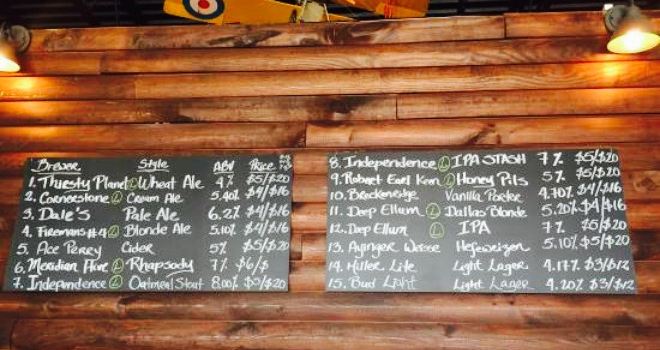 Brewer Style ABV Price
1. Thirsty Planet L Wheat Ale 4% $5/$20
2. Cornerstone L Cream Ale 5.40% $4/$16
3. Dale's Pale Ale 6.2% $4/$16
4. Firemans #4 L Blonde Ale 5.10% $4/$16
5. Ace Perry Cider 5% $5/$20
6. Meridian Hive L Rhapsody 7% $6/$
7. Independence L Oatmeal Stout 8.00% $5/$20
8. Independence L IPA STASH 7% $5/$20
9. Robert Earl Keen L Honey Pils 5% $5/$20
10. Breckenridge Vanilla Porter 4.70% $4/$16
11. Deep Ellum L Dallas Blonde 5.20% $4/$16
12. Deep Ellum L IPA 7% $5/$20
13. Ayinger Weisse Hefeweizen 5.10% $5/$20
14. Miller Lite Light Lager 4.17% $3/$12
15. Bud Light Light Lager 4.20% $3/$12